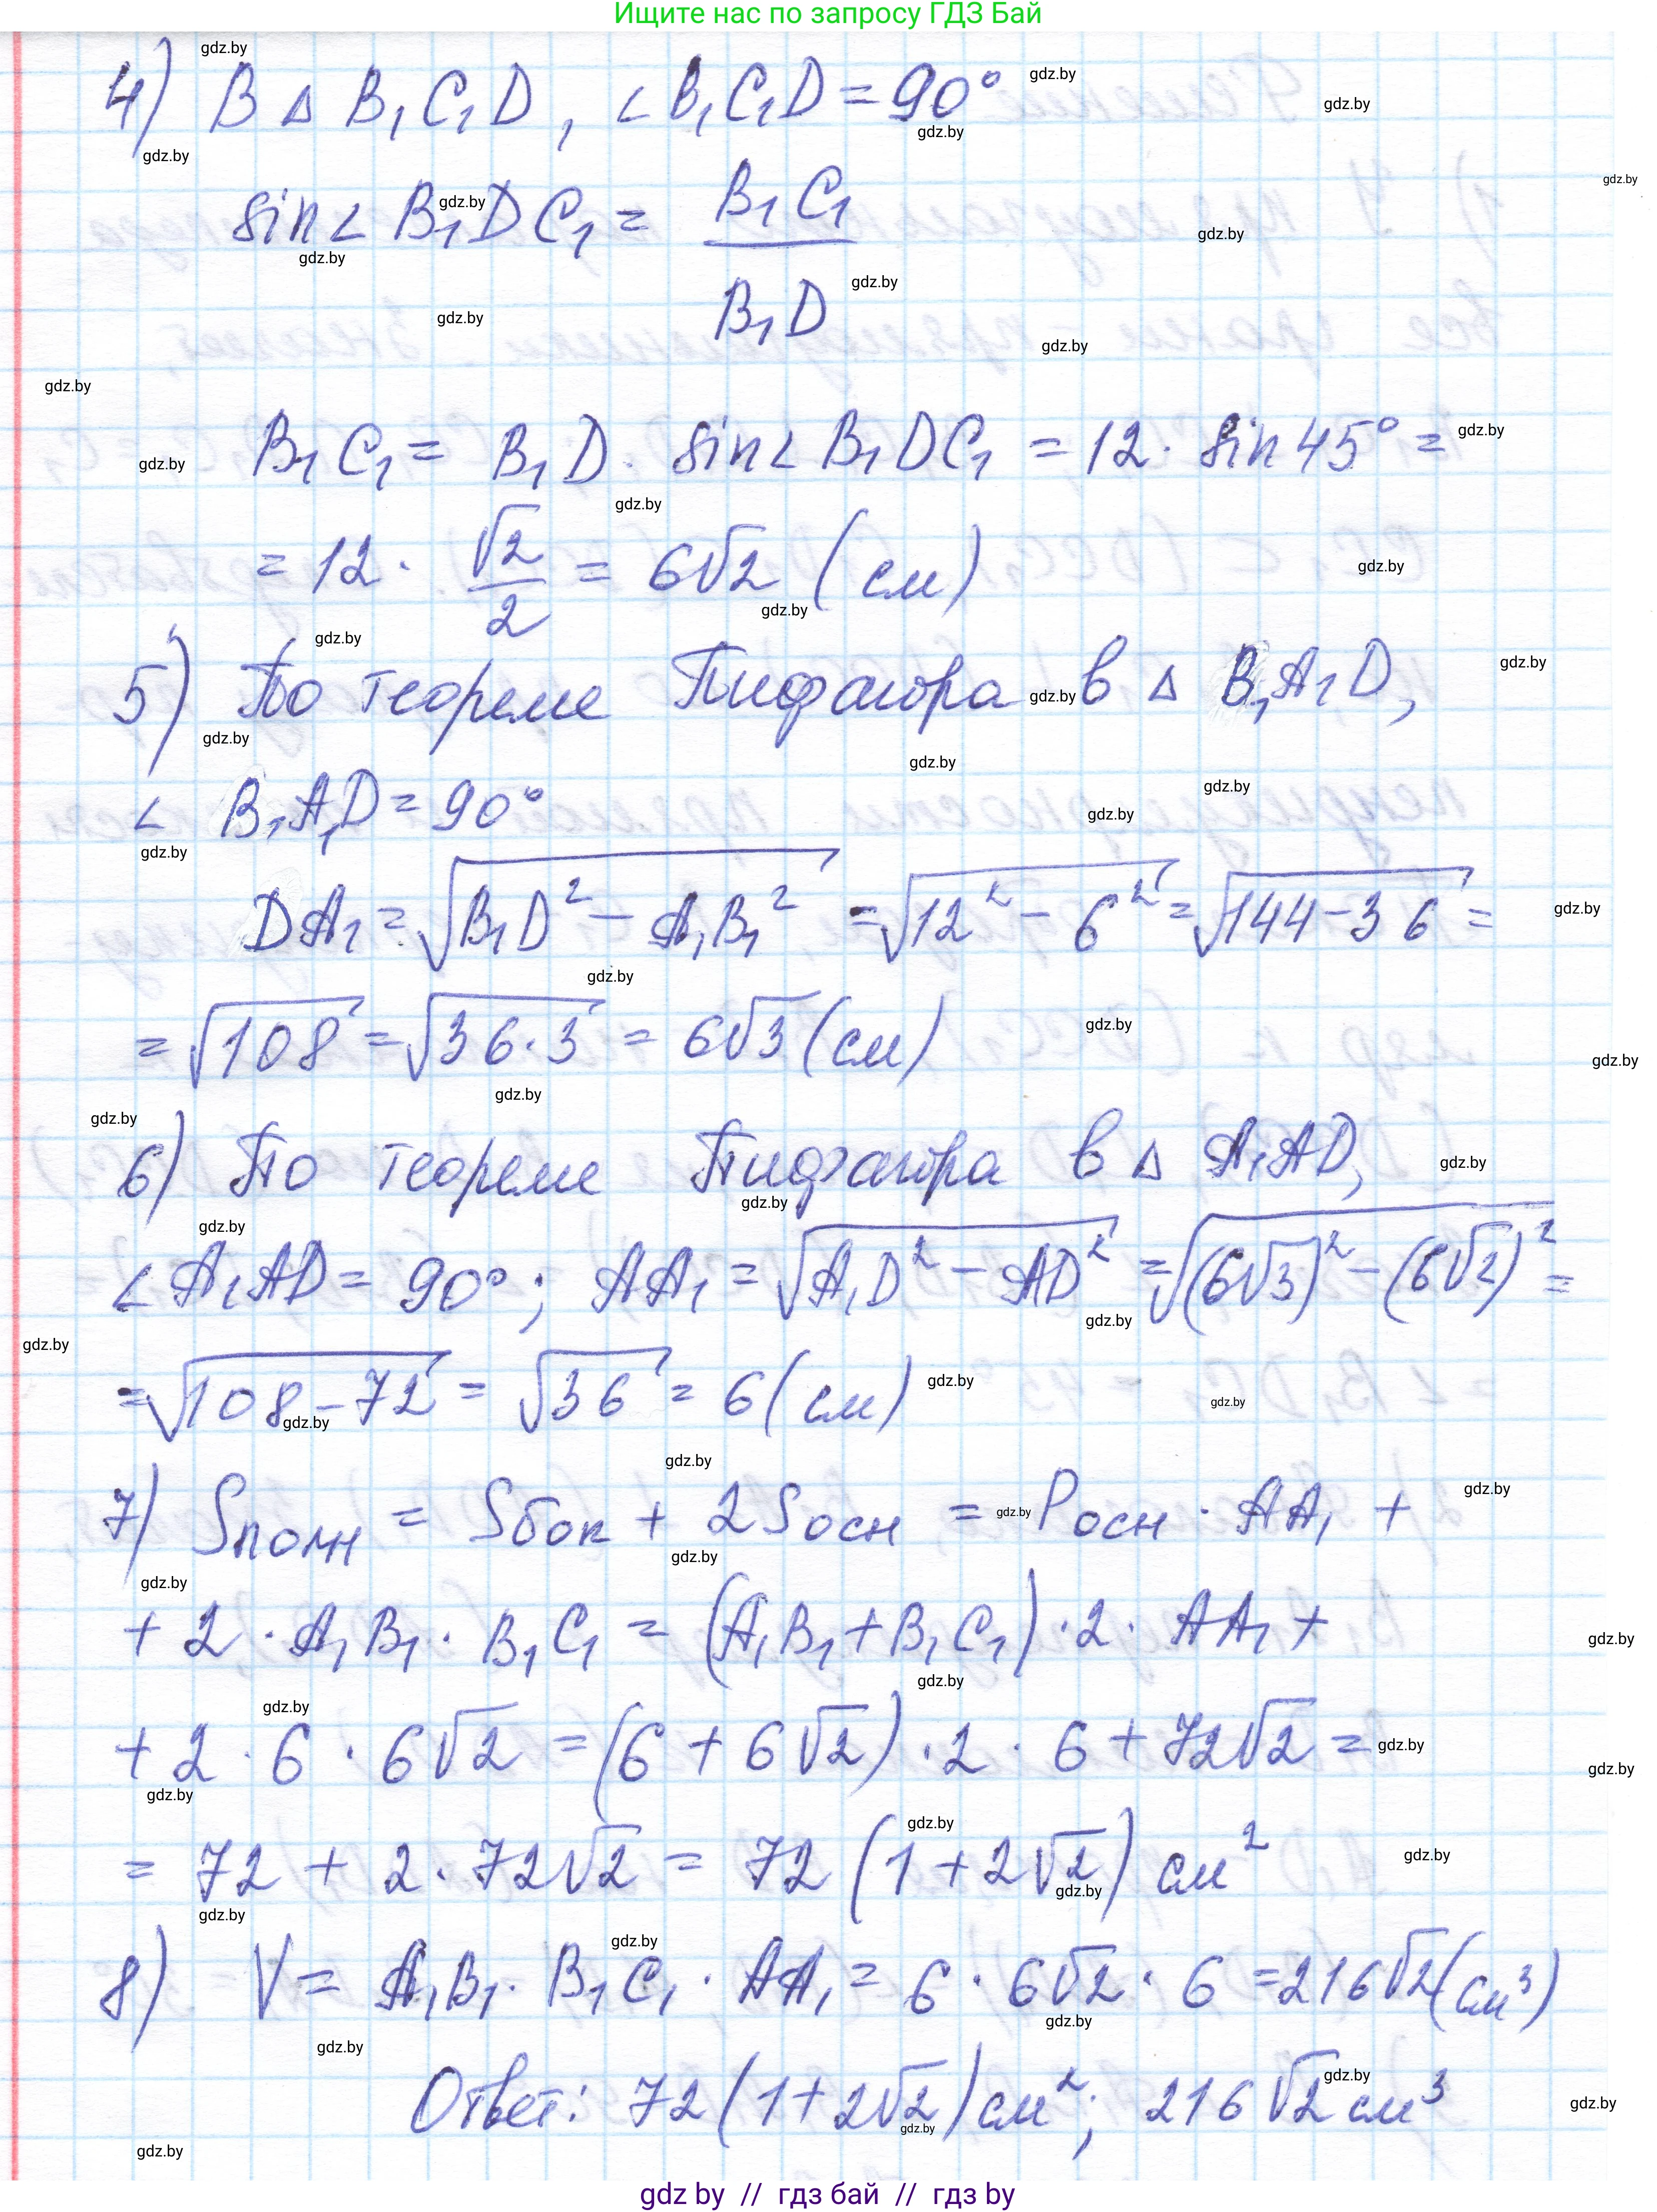 Ищите нас по запросу ГДЗ Бай
4) В Δ B₁C₁D, ∠B₁C₁D = 90°
sin∠B₁DC₁ = B₁C₁ / B₁D
B₁C₁ = B₁D · sin∠B₁DC₁ = 12 · sin45° =
= 12 · √2/2 = 6√2 (см)
5) По теореме Пифагора в Δ B₁A₁D,
∠ B₁A₁D = 90°
DA₁ = √(B₁D² − A₁B₁²) = √(12² − 6²) = √(144 − 36) =
= √108 = √(36·3) = 6√3 (см)
6) По теореме Пифагора в Δ A₁AD,
∠A₁AD = 90°; AA₁ = √(A₁D² − AD²) = √((6√3)² − (6√2)²) =
= √(108 − 72) = √36 = 6 (см)
7) Sполн = Sбок + 2Sосн = Pосн · AA₁ +
+ 2 · A₁B₁ · B₁C₁ = (A₁B₁ + B₁C₁) · 2 · AA₁ +
+ 2 · 6 · 6√2 = (6 + 6√2) · 2 · 6 + 72√2 =
= 72 + 2 · 72√2 = 72 (1 + 2√2) см²
8) V = A₁B₁ · B₁C₁ · AA₁ = 6 · 6√2 · 6 = 216√2 (см³)
Ответ: 72 (1 + 2√2) см²; 216√2 см³
gdz by // гдз бай // гдз by